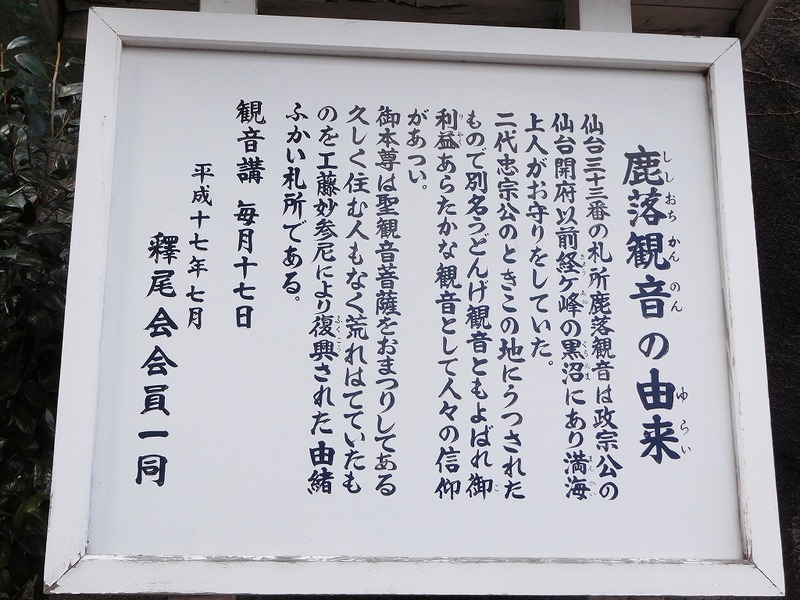 鹿落観音の由来
仙台三十三番の札所鹿落観音は政宗公の
仙台開府以前経ケ峰の黒沼にあり満海
上人がお守りをしていた。
二代忠宗公のときこの地にうつされた
もので別名うどんげ観音ともよばれ御
利益あらたかな観音として人々の信仰
があつい。
御本尊は聖観音菩薩をおまつりしてある
久しく住む人もなく荒れはてていたも
のを工藤妙参尼により復興された由緒
ふかい札所である。
観音講 毎月十七日
平成十七年七月
釋尾会会員一同